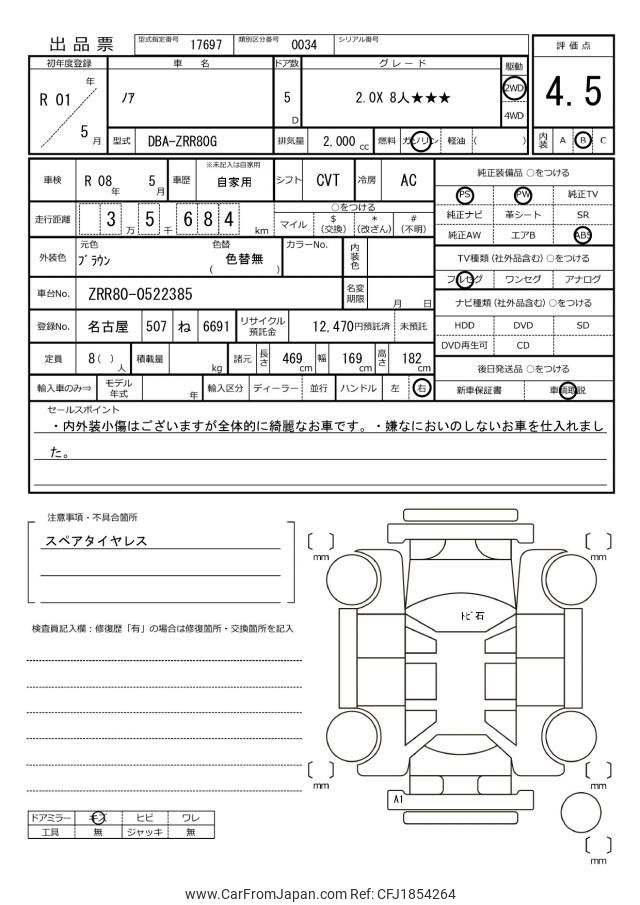 出品票 型式指定番号 17697 類別区分番号 0034 シリアル番号
評価点
4.5
内装 A B C
初年度登録 車名 ドア数 グレード 駆動
R 01 年 / 5 月 ノア 5 D 2.0X 8人★★★ 2WD
4WD
型式 DBA-ZRR80G 排気量 2,000 cc 燃料 ガソリン 軽油 ( )
車検 R 08 年 5 月 車歴 ※未記入は自家用 自家用 シフト CVT 冷房 AC
走行距離 3 5 6 8 4 万 千 km
○をつける
マイル $(交換) *(改ざん) #(不明)
外装色 元色 ブラウン 色替 ( 色替無 ) カラーNo. 内装色
車台No. ZRR80-0522385 名変期限 月 日
登録No. 名古屋 507 ね 6691 リサイクル預託金 12,470円預託済 未預託
定員 8( ) 人 積載量 kg 諸元 長さ 469 cm 幅 169 cm 高さ 182 cm
輸入車のみ⇒ モデル年式 年 輸入区分 ディーラー 並行 ハンドル 左 右
純正装備品 ○をつける
PS PW 純正TV
純正ナビ 革シート SR
純正AW エアB ABS
TV種類(社外品含む)○をつける
フルセグ ワンセグ アナログ
ナビ種類(社外品含む)○をつける
HDD DVD SD
DVD再生可 CD
後日発送品 ○をつける
新車保証書 車輌取説
セールスポイント
・内外装小傷はございますが全体的に綺麗なお車です。・嫌なにおいのしないお車を仕入れまし
た。
注意事項・不具合箇所
スペアタイヤレス
検査員記入欄：修復歴「有」の場合は修復箇所・交換箇所を記入
ドアミラー キズ ヒビ ワレ
工具 無 ジャッキ 無
〔 〕 mm
〔 〕 mm
トビ石
〔 〕 mm
〔 〕 mm
A1
〔 〕 mm
www.CarFromJapan.com Ref: CFJ1854264